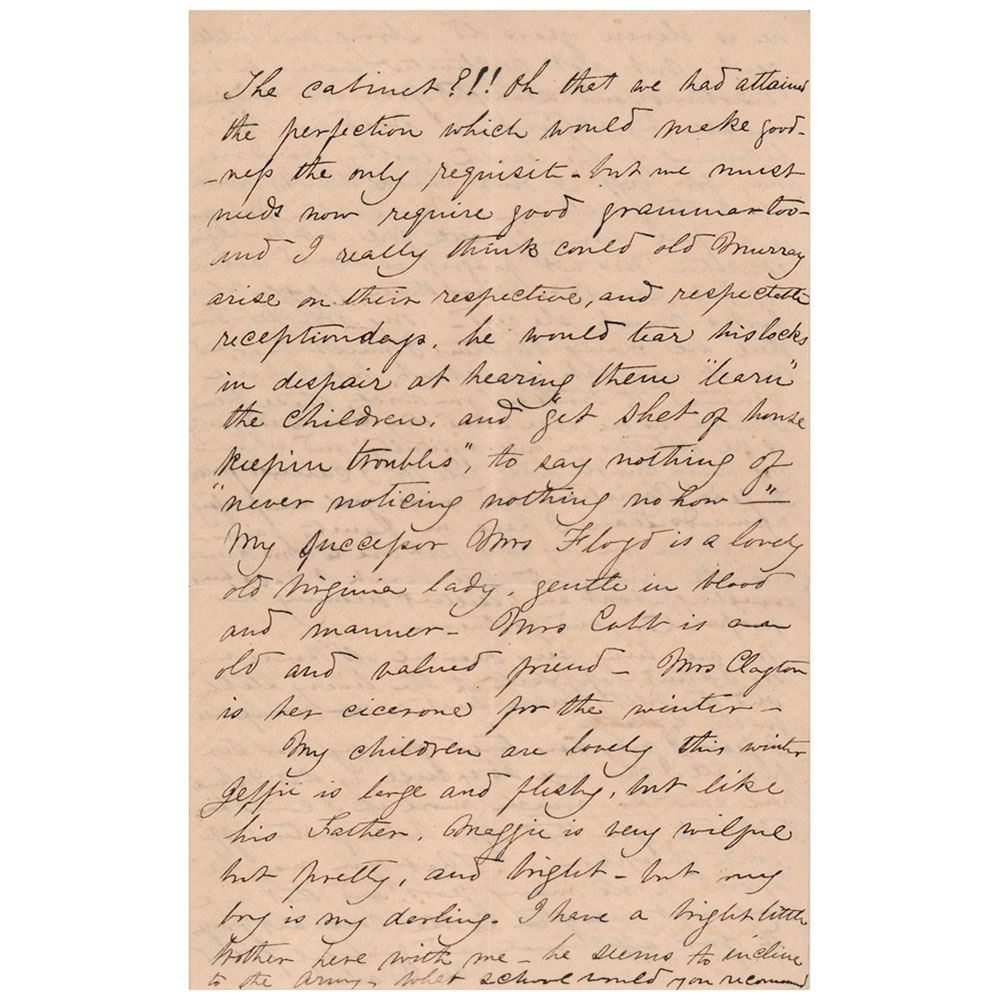 The cabinet?!! Oh that we had attained
the perfection which would make good-
-ness the only requisit - but we must
needs now require good grammar too -
and I really think could old Murray
arise on their respective, and respectable
reception days, he would tear his locks
in despair at hearing them "learn"
the children, and "get shet of house
keepin troubles", to say nothing of
"never noticing nothing no how"
My successor Mrs Floyd is a lovely
old Virginia lady, gentle in blood
and manner - Mrs Cobb is an
old and valued friend - Mrs Clayton
is her cicerone for the winter -
My children are lovely this winter
Jeffie is large and fleshy, but like
his Father, Maggie is very wilful
but pretty, and bright - but my
boy is my darling. I have a bright little
brother here with me - he seems to incline
to the Army - what school would you recommend